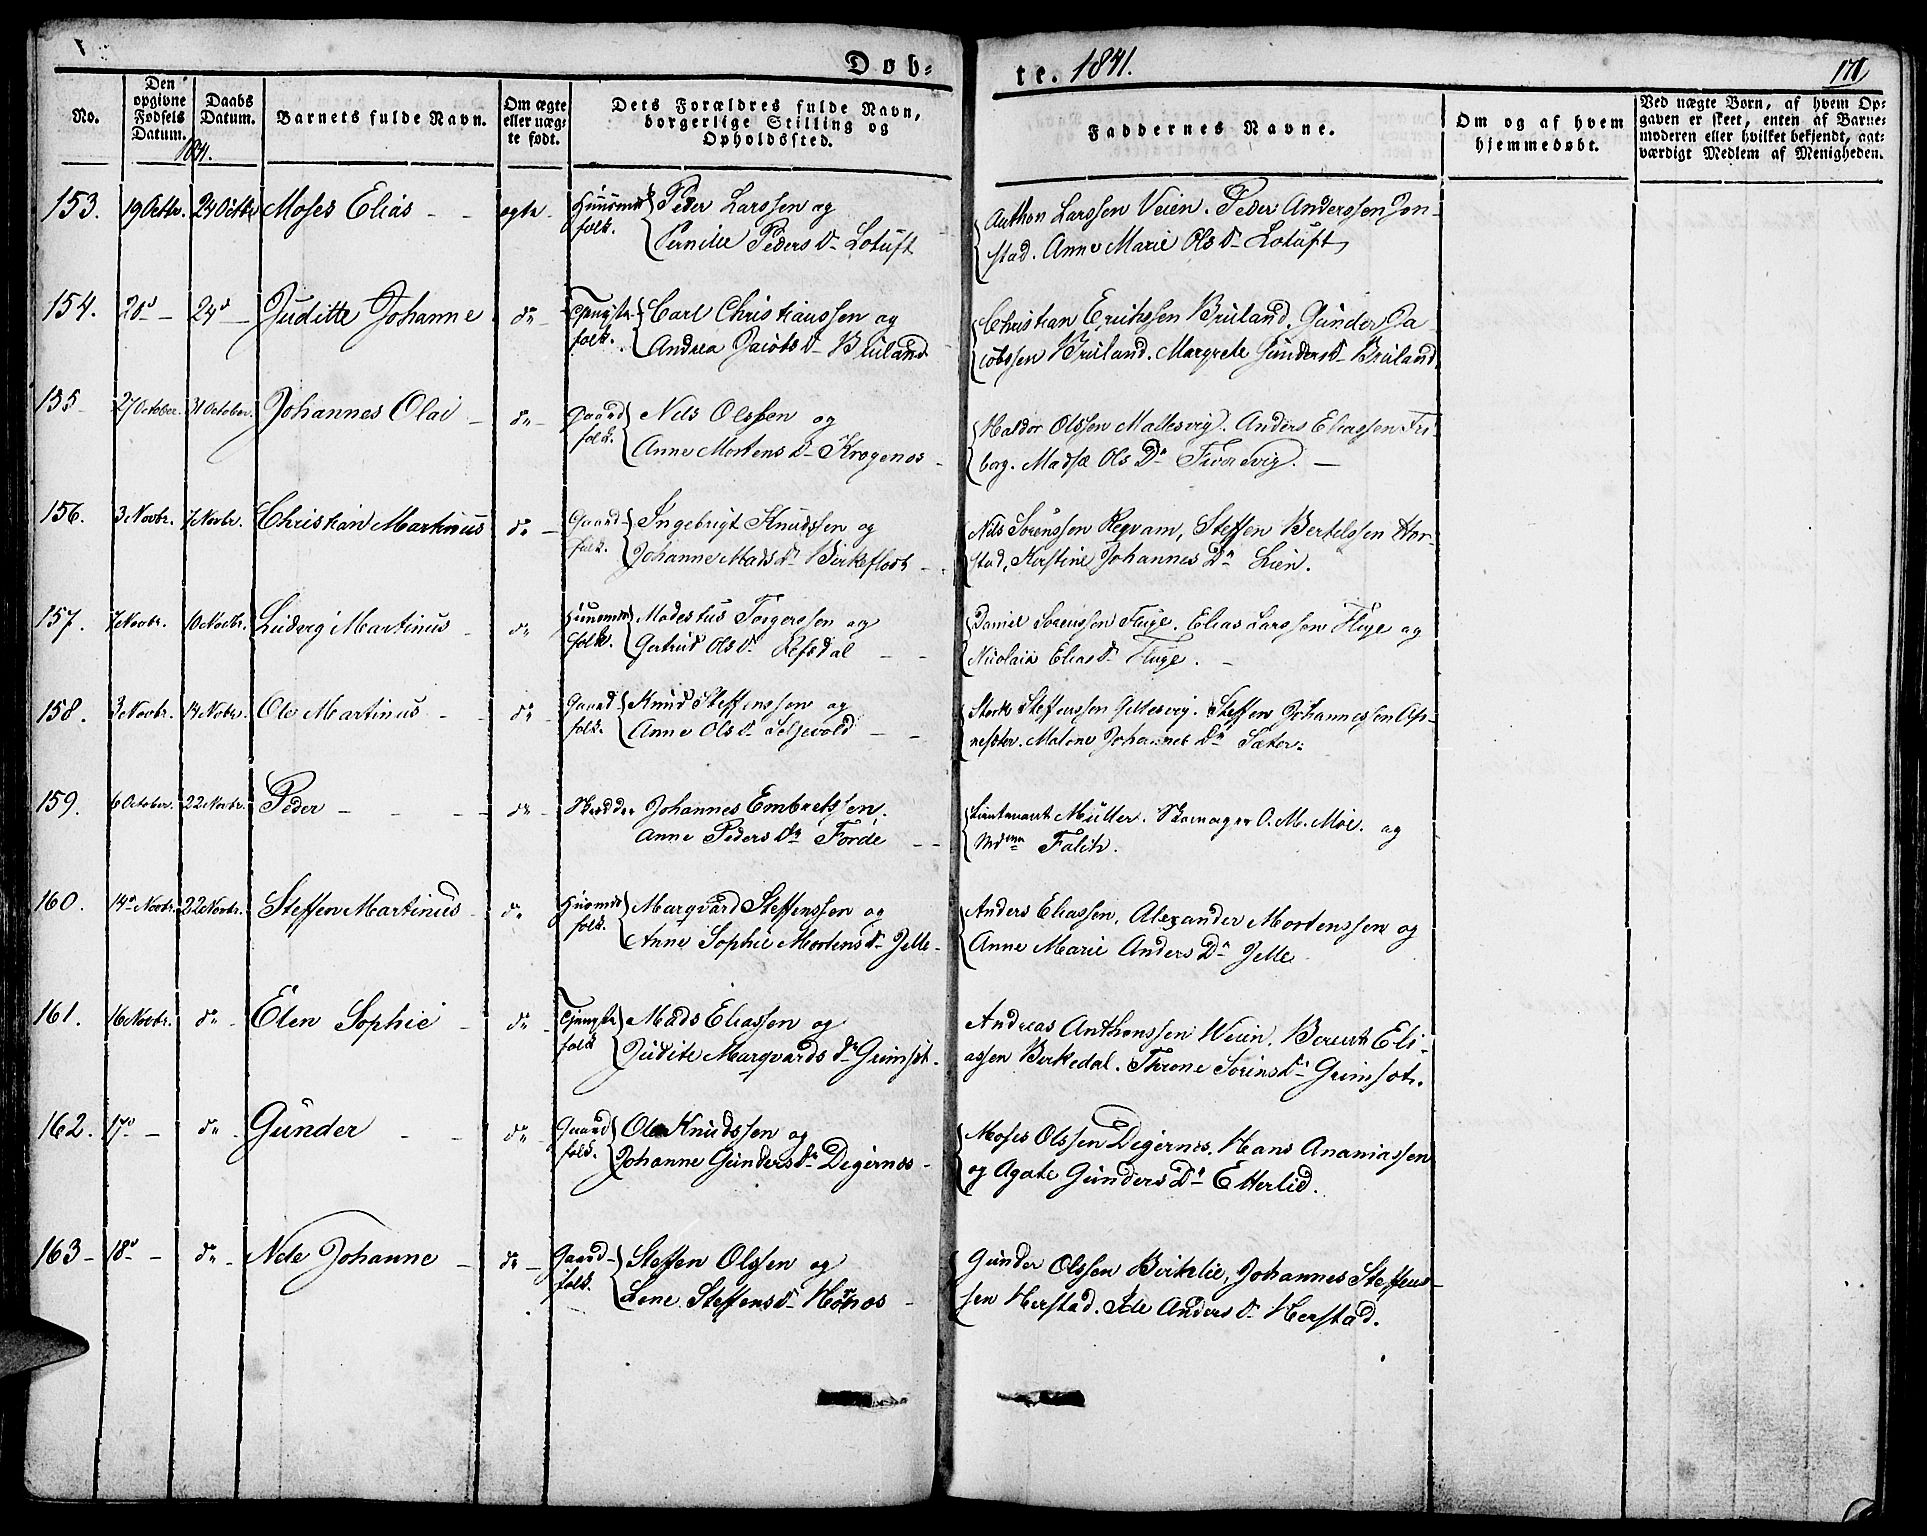 Døb-
te. 1841.
171
No.
Den opgivne Fødsels Datum.
Daabs Datum.
1841.
Barnets fulde Navn.
Om ægte eller uægte født.
Dets Forældres fulde Navn, borgerlige Stilling og Opholdssted.
Faddernes Navne.
Om og af hvem hjemmedøbt.
Ved uægte Børn, af hvem Opgaven er skeet, enten af Barnemoderen eller hvilket bekjendt, aatværdigt Medlem af Menigheden.
153. 19 Octbr. 24 Octbr. Moses Elias - - ægte - Huusmds folk. Peder Larssen og
Pernille Peders D. Lotuft
Anthon Larssen Veien. Peder Anderssen Jon-
stad. Anne Marie Ols D. Lotuft
154. 20 d - 24 d - Juditte Johanne do - Tjengste folk. Carl Christianssen og
Andrea Jacobs D. Bruland
Christian Erichssen Bruland. Gunder Ja-
cobssen Bruland. Margrete Gunders D. Bruland
155 - 27 October. 31 October. Johannes Olai - do - Gaard folk. Nils Olssen og
Anne Mortens D. Krogenos -
Haldor Olssen Mallesvig. Anders Eliassen Fri-
borg. Madsæ Ols Dr. -
156. 3 Novbr. 7 Novbr. Christian Martinus do - Gaard- folk. Ingebrigt Knudssen og
Johanne Mads D. Birkeflodt -
Nils Sørenssen Reqvam, Steffen Bertelssen Hor-
stad, Kirstine Johannes Dr. Lien.
157. 7 Novbr. 10 Novbr. Ludvig Martinus - do Huusmds folk. Modestus Torgerssen og
Gertrud Ols D. Refsdal - -
Daniel Sørenssen Fluge. Elias Larssen Fluge og
Nicolaia Elias D. Fluge. -
158. 3 Novbr. 14 Novbr. Ole Martinus - - do - Gaard folk. Knud Steffenssen og
Anne Ols D. Seljevold - -
Steffenssen Gillesvig. Steffen Johannessen
Malene Johannes Dr. Sæter.
159. 6 October. 22 Novbr. Peder - - - - do - Skrædder Johannes Embretssen.
Anne Peders Dr. Førde - -
Lieutenant Müller. Skomager O. M. Moe. og
Mdme Falch.
160. 14 Novbr. 22 Novbr. Steffen Martinus - do Huusmds folk. Marqvard Steffenssen og
Anne Sophie Mortens D. Jelle -
Anders Eliassen, Alexander Mortenssen og
Anne Marie Anders Dr. Jelle
161. 16 Novbr. do - Elen Sophie - do - Tjengste folk Mads Eliassen og
Judite Marqvards D. Grimsøt -
Andreas Anthonssen Weien. Berent Eli-
assen Birkedal. Throne Sørens D. Grimsøt.
162. 17 d - do - Gunder - - do - Gaard folk. Ole Knudssen og
Johanne Gunders D. Degernes -
Moses Olssen Degernes. Hans Ananiassen
og Agate Gunders Dr. Etterlid.
163 - 18 d - do - Nele Johanne - do - Gaard- folk. Steffen Olssen og
Lene Steffens D. Hornos -
Gunder Olssen Birkelie, Johannes Steffens-
sen Herstad. Ide Anders D. Herstad.